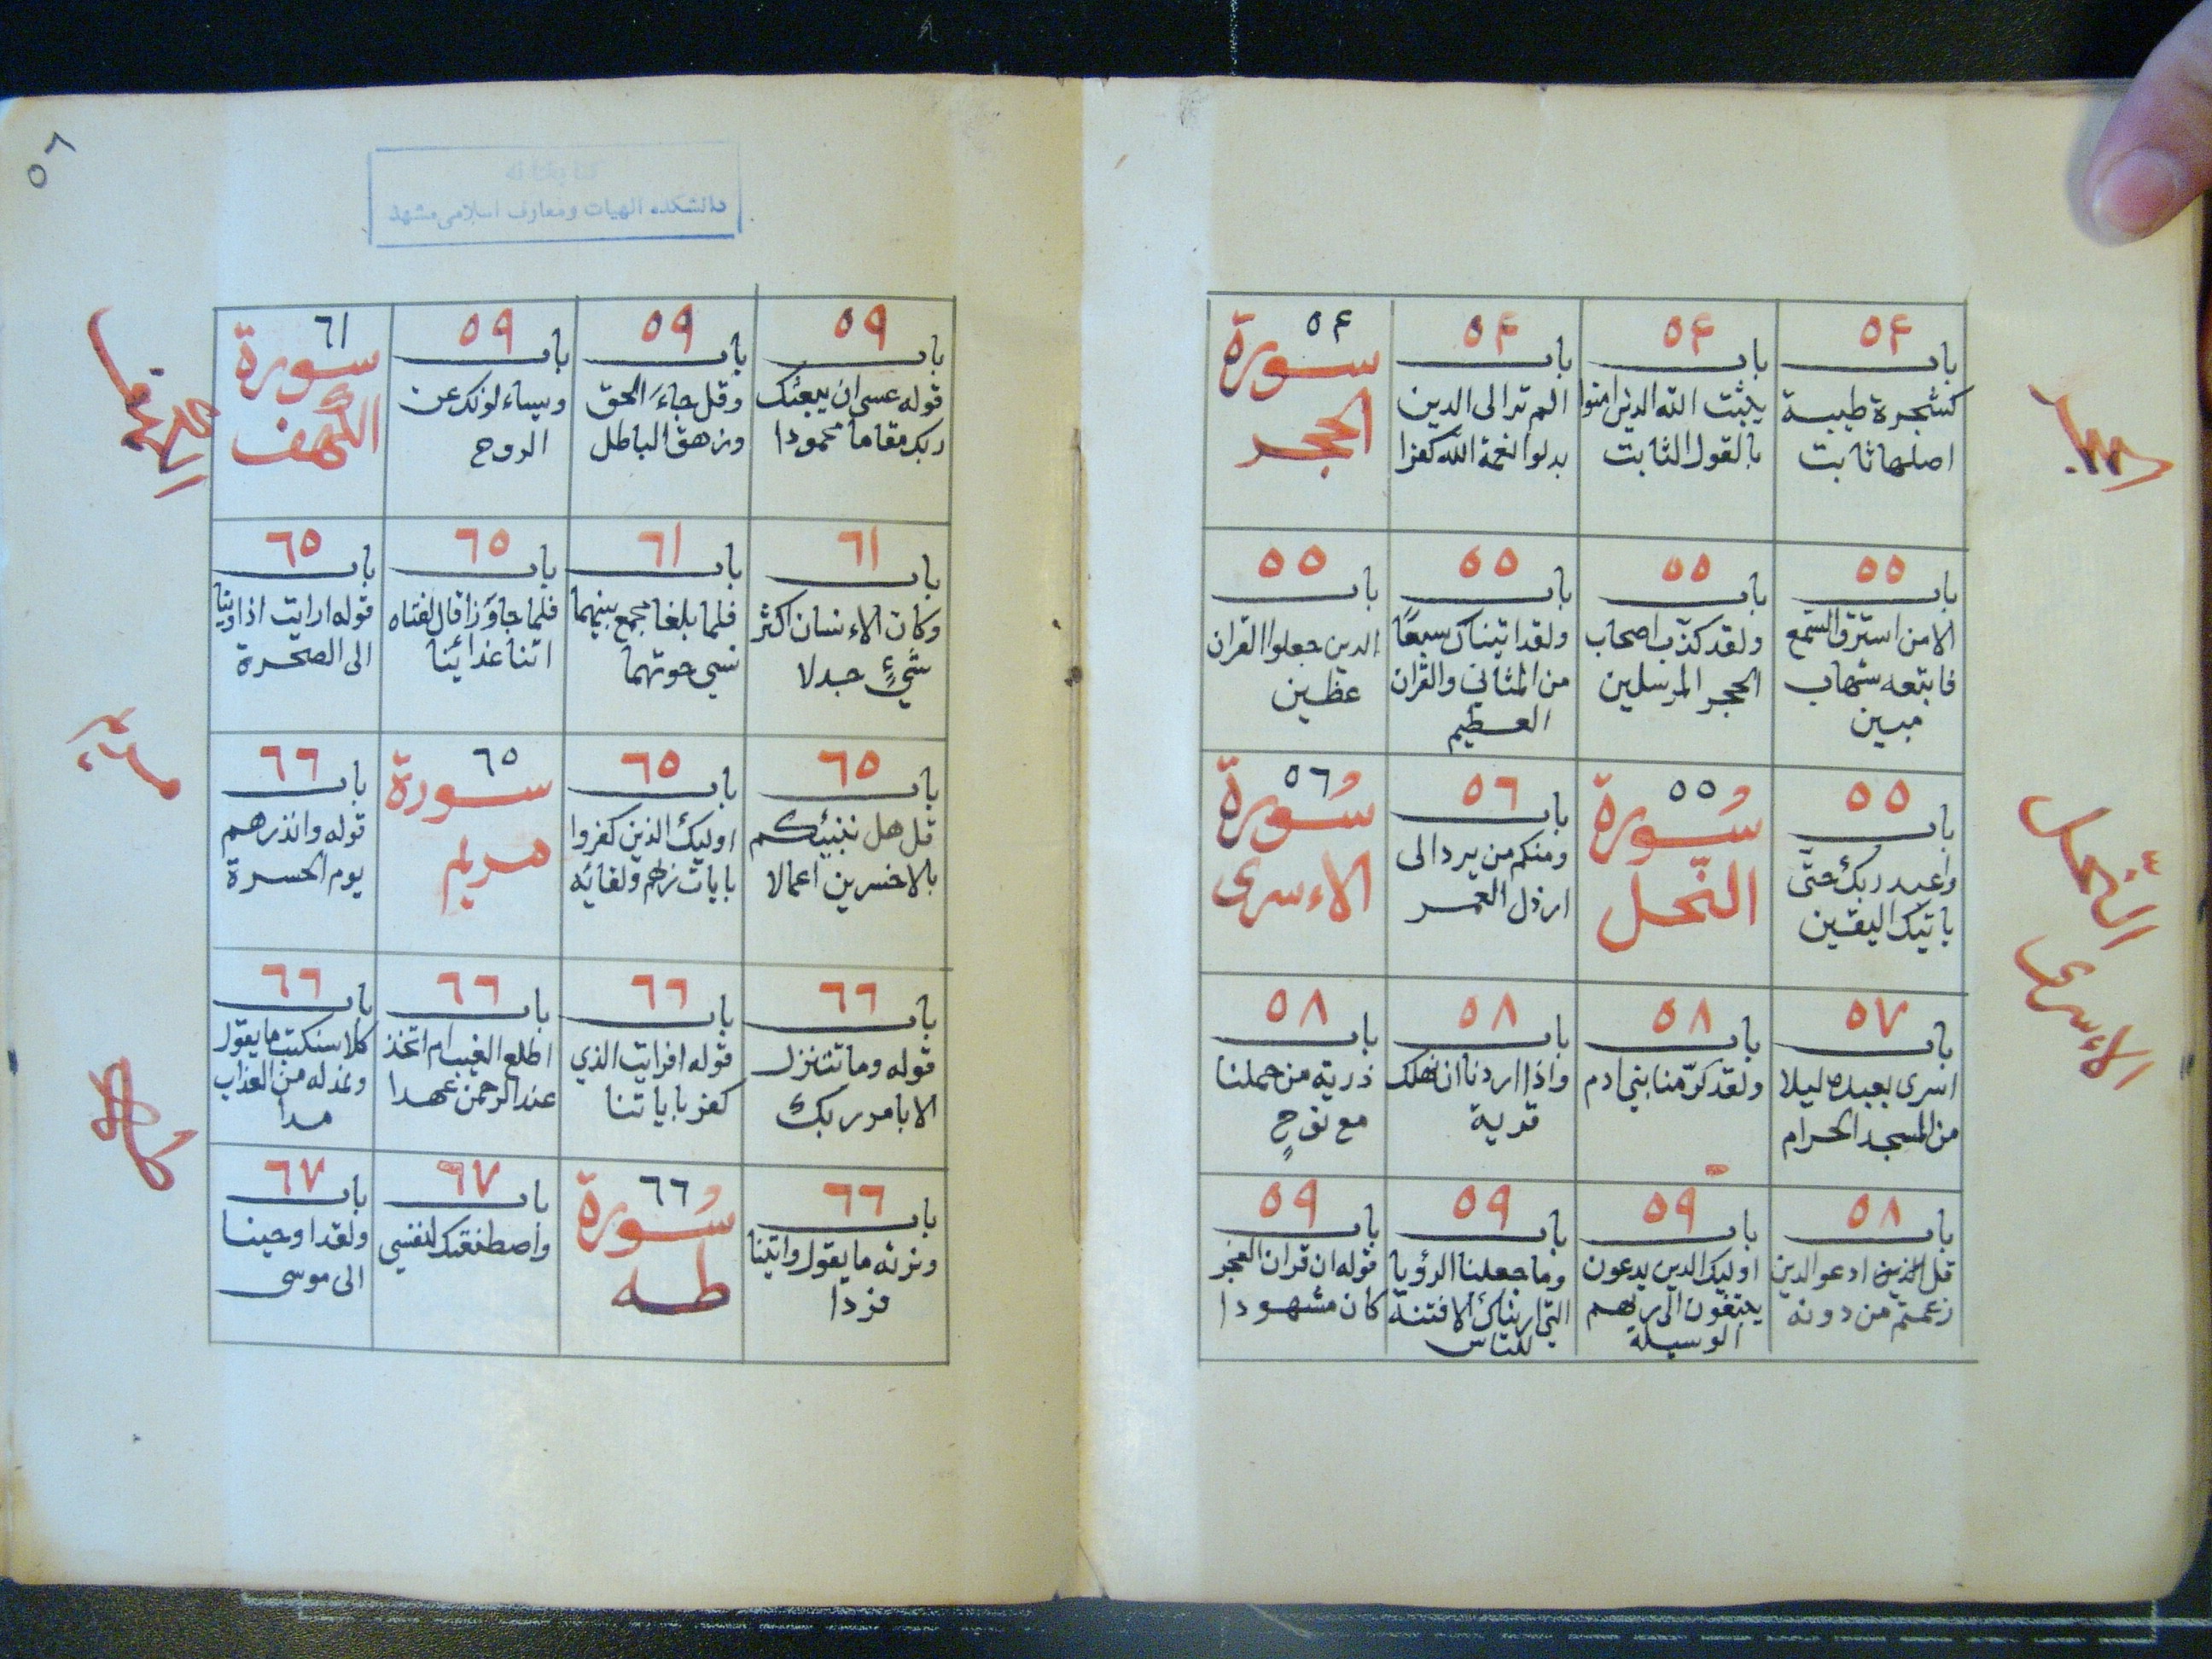 الحجر
۵۴
باب
كشجرة طيبة
اصلها ثابت
۵۴
باب
يثبت الله الذين امنوا
بالقول الثابت
۵۴
باب
الم تر الى الذين
بدلوا نعمة الله كفرا
۵۴
سورة
الحجر
۵۵
باب
الا من استرق السمع
فاتبعه شهاب
مبين
۵۵
باب
ولقد كذب اصحاب
الحجر المرسلين
۵۵
باب
ولقد اتيناك سبعًا
من المثاني والقران
العظيم
۵۵
باب
الذين جعلوا القران
عظين
النحل
۵۵
باب
واعبد ربك حتّى
ياتيك اليقين
۵۵
سُورة
النّحل
۵٦
باب
ومنكم من يرد الى
ارذل العمر
۵٦
سُورة
الاءسرى
الاءسرى
۵۷
باب
اسرى بعبده ليلا
من المسجد الحرام
۵۸
باب
ولقد كرّمنا بني ادم
۵۸
باب
واذا اردنا ان نهلك
قرية
۵۸
باب
ذرية من حملنا
مع نوحٍ
۵۸
باب
قل ادعوا الذين
زعمتم من دونه
۵۹
باب
اوليك الذين يدعون
يبتغون الى ربهم
الوسيلة
۵۹
باب
وما جعلنا الرؤيا
التي اريناك الا فتنة
للناس
۵۹
باب
قوله ان قران الفجر
كان مشهودا
۵٦
دانشكده الهيات ومعارف اسلامى مشهد
۵۹
باب
قوله عسى ان يبعثك
ربك مقاما محمودا
۵۹
باب
وقل جاءَ الحق
وزهق الباطل
۵۹
باب
ويساءلونك عن
الروح
٦١
سورة
الكهف
الكهف
٦١
باب
وكان الاءنسان اكثر
شيءٍ جدلا
٦١
باب
فلما بلغا مجمع بينهما
نسي حوتهما
٦۵
باب
فلما جاوزا قال لفتاه
اتنا غذائنا
٦۵
باب
قوله ارايت اذ اوينا
الى الصخرة
مريم
٦۵
باب
قل هل ننبئكم
بالاخسرين اعمالا
٦۵
باب
اوليك الذين كفروا
بايات ربهم ولقائه
٦۵
سورة
مريم
٦٦
باب
قوله وانذرهم
يوم الحسرة
طه
٦٦
باب
قوله وما نتنزل
الا بامر ربك
٦٦
باب
قوله افرايت الذي
كفر باياتنا
٦٦
باب
اطلع الغيب ام اتخذ
عند الرحمن عهدا
٦٦
باب
كلا سنكتب ما يقول
ونمد له من العذاب
مدا
٦٦
باب
ونرثه ما يقول واتينا
فردا
٦٦
سُورة
طه
٦۷
باب
واصطنعتك لنفسي
٦۷
باب
ولقد اوحينا
الى موسى